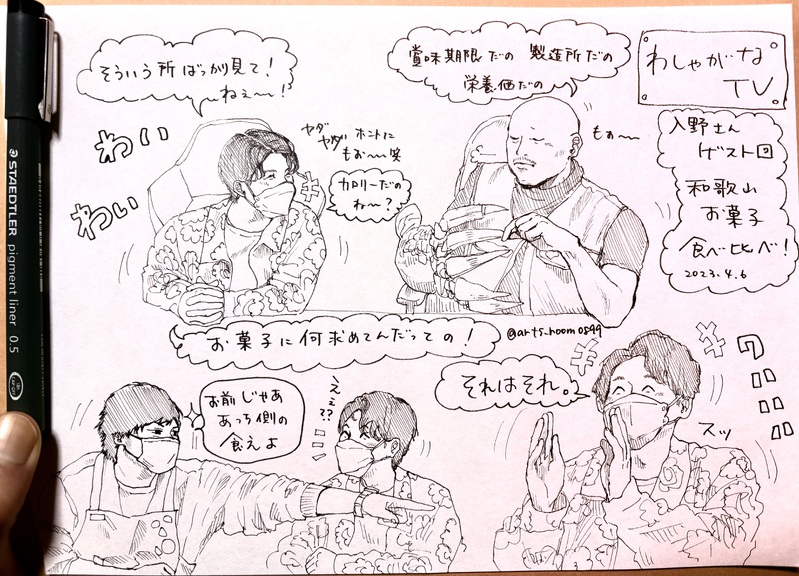 そういう所ばっかり見て!
ねぇ〜!
わい
わい
ヤダ
ヤダ ホントに
もぉ〜笑
カロリーだの
ね〜?
賞味期限だの 製造所だの
栄養価だの
もぉ〜
わしゃがな
TV
入野さん
ゲスト回
和歌山
お菓子
食べ比べ!
2023.4.6
お菓子に何求めてんだっての!
@arts_room0599
お前じゃあ
あっち側の
食えよ
えぇ??
それはそれ。
スッ
STAEDTLER pigment liner 0.5